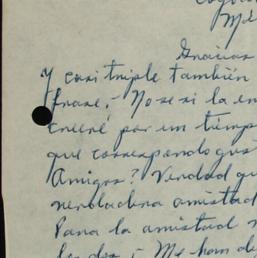 Mé
Gracias
y casi triple también
frase. No se si la en
creeré por un tiemp
que correspondo gus
Amigos? Verdad qu
verdadera amistad
Para la amistad n
los dos; Me han de